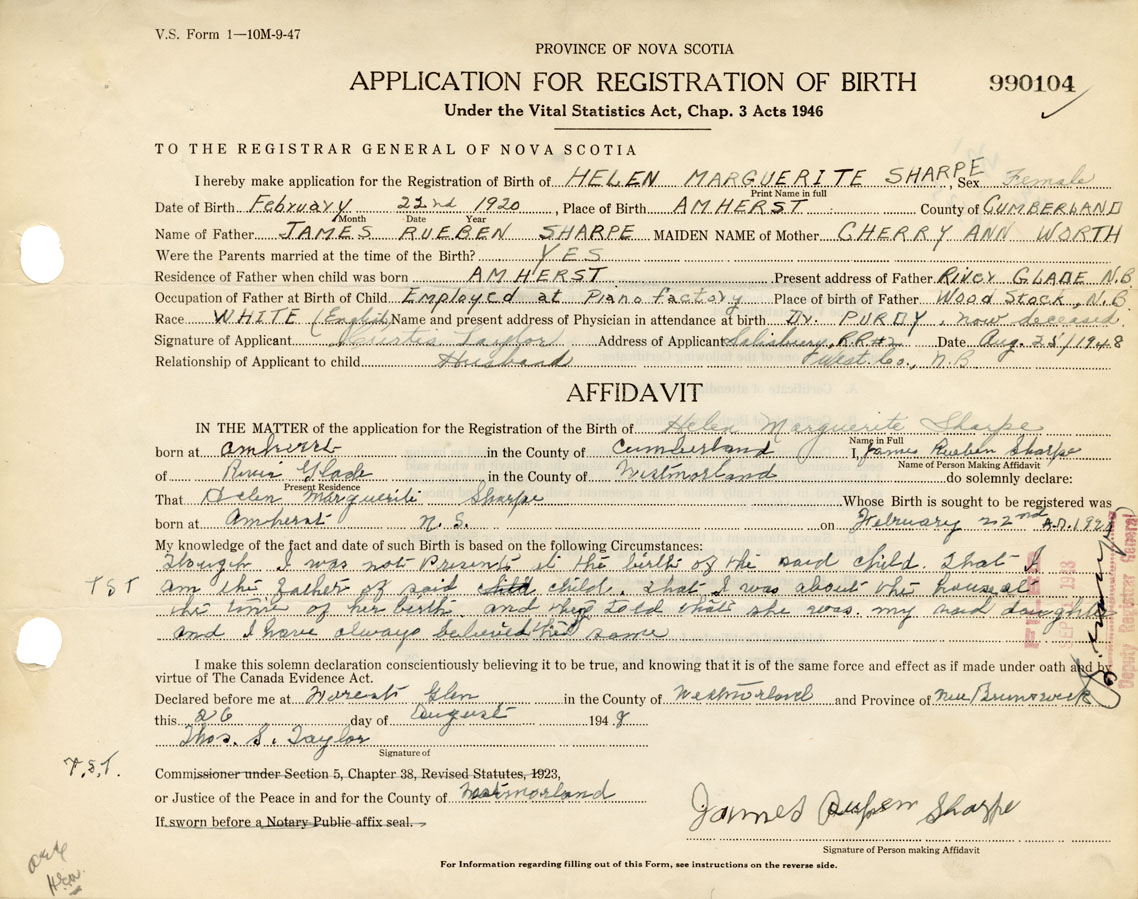 V.S. Form 1—10M-9-47
PROVINCE OF NOVA SCOTIA
APPLICATION FOR REGISTRATION OF BIRTH 990104
Under the Vital Statistics Act, Chap. 3 Acts 1946
TO THE REGISTRAR GENERAL OF NOVA SCOTIA
I hereby make application for the Registration of Birth of HELEN MARGUERITE SHARPE, Sex Female
Print Name in full
Date of Birth February 22nd 1920, Place of Birth AMHERST County of CUMBERLAND
Month Date Year
Name of Father JAMES RUEBEN SHARPE MAIDEN NAME of Mother CHERRY ANN WORTH
Were the Parents married at the time of the Birth? YES
Residence of Father when child was born AMHERST Present address of Father River GLADE N.B
Occupation of Father at Birth of Child Employed at Piano factory Place of birth of Father Wood Stock, N.B
Race WHITE (English) Name and present address of Physician in attendance at birth Dr. PURDY, now deceased.
Signature of Applicant Curtis Taylor Address of Applicant Salisbury, RR#2 Date Aug. 25/1948
Relationship of Applicant to child Husband West. Co., N.B
AFFIDAVIT
IN THE MATTER of the application for the Registration of the Birth of Helen Marguerite Sharpe
Name in Full
born at Amherst in the County of Cumberland I, James Rueben Sharpe
Name of Person Making Affidavit
of River Glade in the County of Westmorland do solemnly declare:
Present Residence
That Helen Marguerite Sharpe Whose Birth is sought to be registered was
born at Amherst N.S. on February 22nd A.D. 192
My knowledge of the fact and date of such Birth is based on the following Circumstances:
Though I was not Present at the birth of the said child. That I
TST am the father of said child. That I was about the house at
the time of her birth and they told that she was my said daughter
and I have always believed the same
I make this solemn declaration conscientiously believing it to be true, and knowing that it is of the same force and effect as if made under oath and by
virtue of The Canada Evidence Act.
Declared before me at Glen in the County of Westmorland and Province of New Brunswick
this 26 day of August 1948
Thos. S. Taylor
Signature of
T.S.T. Commissioner under Section 5, Chapter 38, Revised Statutes, 1923,
or Justice of the Peace in and for the County of Westmorland
If sworn before a Notary Public affix seal.
James Rupen Sharpe
Signature of Person making Affidavit
For Information regarding filling out of this Form, see instructions on the reverse side.
FILED
SEP 1948
Deputy Registrar General